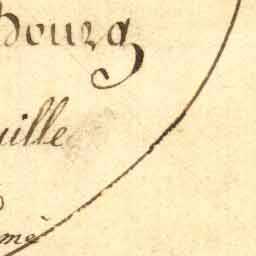 Bourg
uille
mé